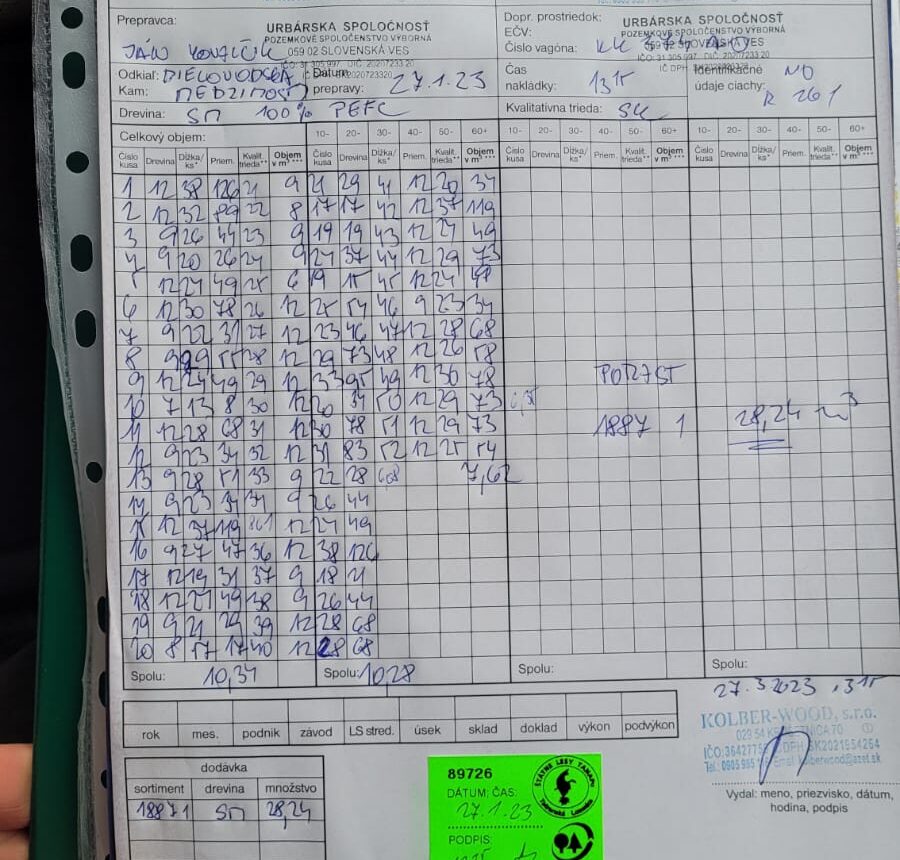 Prepravca:
URBÁRSKA SPOLOČNOSŤ
POZEMKOVÉ SPOLOČENSTVO VÝBORNÁ
059 02 SLOVENSKÁ VES
Dopr. prostriedok:
EČV:
Číslo vagóna: KK
URBÁRSKA SPOLOČNOSŤ
POZEMKOVÉ SPOLOČENSTVO VÝBORNÁ
Odkiaľ:
Kam:
Dátum prepravy: 27.1.23
Čas nakládky: 1315
Identifikačné údaje ciachy: NO
R 261
Drevina: SM 100% PEFC
Kvalitatívna trieda:
Celkový objem:
10- 20- 30- 40- 50- 60+ 10- 20- 30- 40- 50- 60+ 10- 20- 30- 40- 50- 60+
Číslo kusa Drevina Dĺžka/ks* Priem. Kvalit. trieda** Objem v m³ *** Číslo kusa Drevina Dĺžka/ks* Priem. Kvalit. trieda** Objem v m³ ***
1 12 38 126 21 9 21 29 41 12 20 34
2 12 32 89 22 8 17 17 42 12 37 119
3 9 26 44 23 9 19 19 43 12 24 49
9 20 26 24 9 24 37 44 12 29 73
12 24 49 25 6 19 15 45 12 24
6 12 30 78 26 12 25 54 46 9 23 34
7 9 22 31 27 12 23 46 47 12 28 68
8 9 29 55 28 12 29 73 48 12 26 58
9 12 24 49 29 12 33 95 49 12 30 78
10 7 13 8 30 12 20 34 50 12 29 73
11 12 28 68 31 12 30 78 51 12 29 73
12 9 23 34 32 12 31 83 52 12 25 54
13 9 28 51 33 9 22 28 7,62
14 9 23 34 34 9 26 44
15 12 37 119 12 24 49
16 9 27 47 36 12 38 126
17 12 19 31 37 9 18 21
18 12 24 49 38 9 26 44
19 9 21 29 39 12 28 68
20 8 17 17 40 12 28 68
1887 1 28,24 m³
Spolu: 10,34
Spolu: 10,28
Spolu:
Spolu:
27.3.2023
rok mes. podnik závod LS stred. úsek sklad doklad výkon podvýkon
KOLBER-WOOD, s.r.o.
dodávka
sortiment drevina množstvo
1887 1 SM 28,24
89726
DÁTUM: ČAS:
27.1.23
PODPIS:
ŠTÁTNE LESY TANAPU
Vydal: meno, priezvisko, dátum,
hodina, podpis